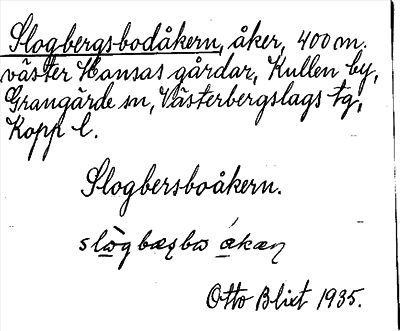 Slogbergsbodåkern, åker, 400 m.
väster Hansas gårdar, Kullen by,
Grangärde sn, Västerbergslags tg,
Kopp l.
Slogbersboåkern.
Otto Blixt 1935.